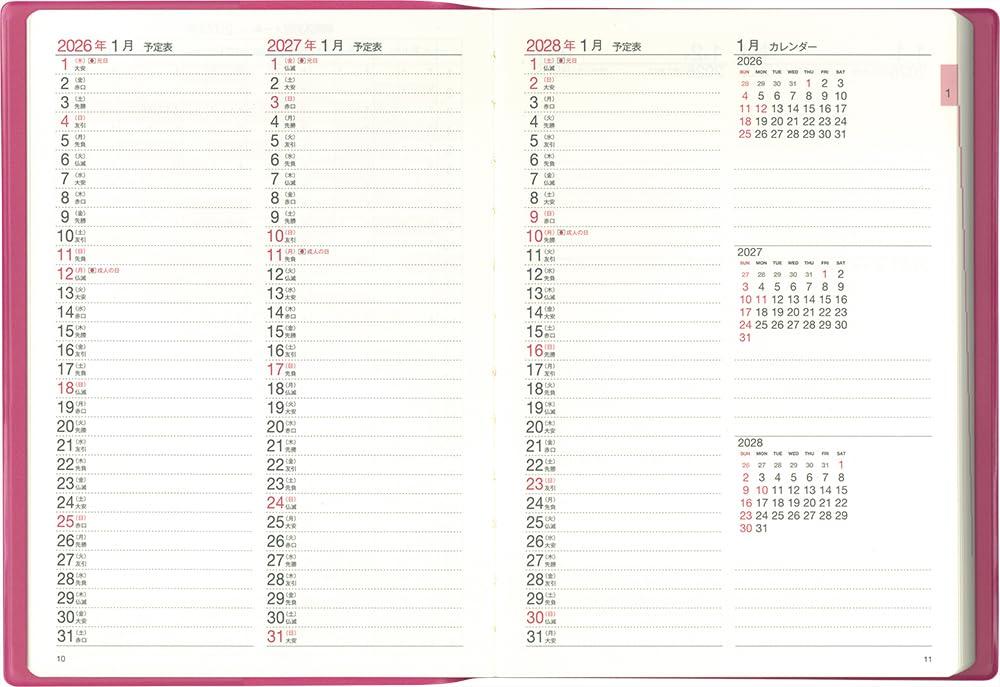 2026年 1月 予定表
1 (木) 元日 大安
2 (金) 赤口
3 (土) 先勝
4 (日) 友引
5 (月) 先負
6 (火) 仏滅
7 (水) 大安
8 (木) 赤口
9 (金) 先勝
10 (土) 友引
11 (日) 先負
12 (月) 成人の日 仏滅
13 (火) 大安
14 (水) 赤口
15 (木) 先勝
16 (金) 友引
17 (土) 先負
18 (日) 仏滅
19 (月) 赤口
20 (火) 先勝
21 (水) 友引
22 (木) 先負
23 (金) 仏滅
24 (土) 大安
25 (日) 赤口
26 (月) 先勝
27 (火) 友引
28 (水) 先負
29 (木) 仏滅
30 (金) 大安
31 (土) 赤口
10
2027年 1月 予定表
1 (金) 元日 仏滅
2 (土) 大安
3 (日) 赤口
4 (月) 先勝
5 (火) 友引
6 (水) 先負
7 (木) 仏滅
8 (金) 赤口
9 (土) 先勝
10 (日) 友引
11 (月) 成人の日 先負
12 (火) 仏滅
13 (水) 大安
14 (木) 赤口
15 (金) 先勝
16 (土) 友引
17 (日) 先負
18 (月) 仏滅
19 (火) 大安
20 (水) 赤口
21 (木) 先勝
22 (金) 友引
23 (土) 先負
24 (日) 仏滅
25 (月) 大安
26 (火) 赤口
27 (水) 先勝
28 (木) 友引
29 (金) 先負
30 (土) 仏滅
31 (日) 大安
2028年 1月 予定表
1 (土) 元日 仏滅
2 (日) 大安
3 (月) 赤口
4 (火) 先勝
5 (水) 友引
6 (木) 先負
7 (金) 仏滅
8 (土) 大安
9 (日) 赤口
10 (月) 成人の日 先勝
11 (火) 友引
12 (水) 先負
13 (木) 仏滅
14 (金) 大安
15 (土) 赤口
16 (日) 先勝
17 (月) 友引
18 (火) 先負
19 (水) 仏滅
20 (木) 大安
21 (金) 赤口
22 (土) 先勝
23 (日) 友引
24 (月) 先負
25 (火) 仏滅
26 (水) 大安
27 (木) 先勝
28 (金) 友引
29 (土) 先負
30 (日) 仏滅
31 (月) 大安
1月 カレンダー
2026
SUN MON TUE WED THU FRI SAT
28 29 30 31 1 2 3
4 5 6 7 8 9 10
11 12 13 14 15 16 17
18 19 20 21 22 23 24
25 26 27 28 29 30 31
2027
SUN MON TUE WED THU FRI SAT
27 28 29 30 31 1 2
3 4 5 6 7 8 9
10 11 12 13 14 15 16
17 18 19 20 21 22 23
24 25 26 27 28 29 30
31
2028
SUN MON TUE WED THU FRI SAT
26 27 28 29 30 31 1
2 3 4 5 6 7 8
9 10 11 12 13 14 15
16 17 18 19 20 21 22
23 24 25 26 27 28 29
30 31
1
11